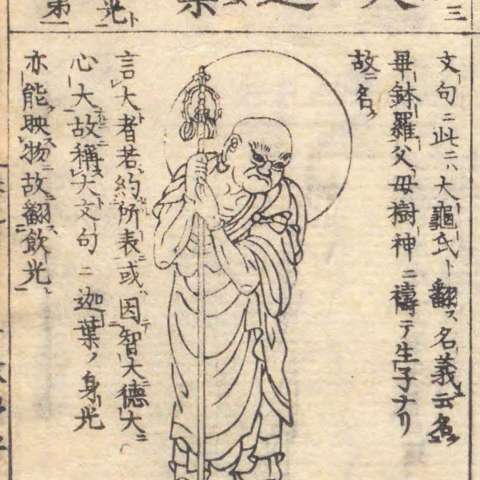 三
文句ニ此ニハ大龜氏ト翻ス名義云名
畢鉢羅父母樹神ニ禱テ生子ナリ
故ニ名ク
光
第
言大者若約所表或因智大德大
心大故稱大文句ニ迦葉ノ身光
亦能映物故翻飲光